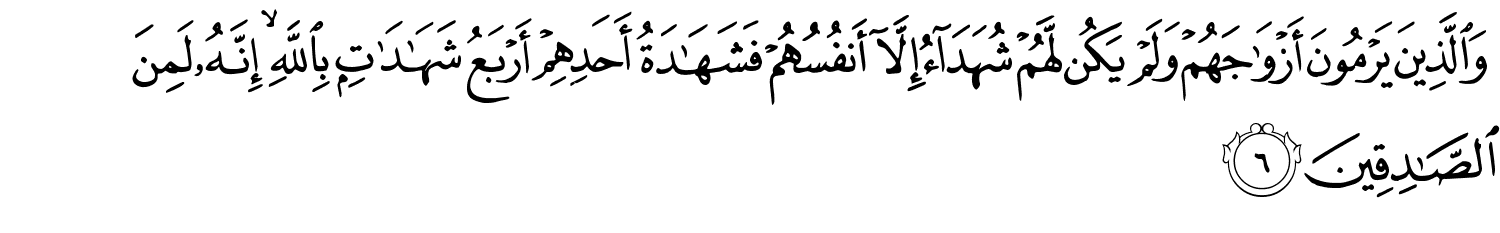 وَٱلَّذِينَ يَرْمُونَ أَزْوَٰجَهُمْ وَلَمْ يَكُن لَّهُمْ شُهَدَآءُ إِلَّآ أَنفُسُهُمْ فَشَهَـٰدَةُ أَحَدِهِمْ أَرْبَعُ شَهَـٰدَٰتٍۭ بِٱللَّهِ ۙ إِنَّهُۥ لَمِنَ
ٱلصَّـٰدِقِينَ ٦